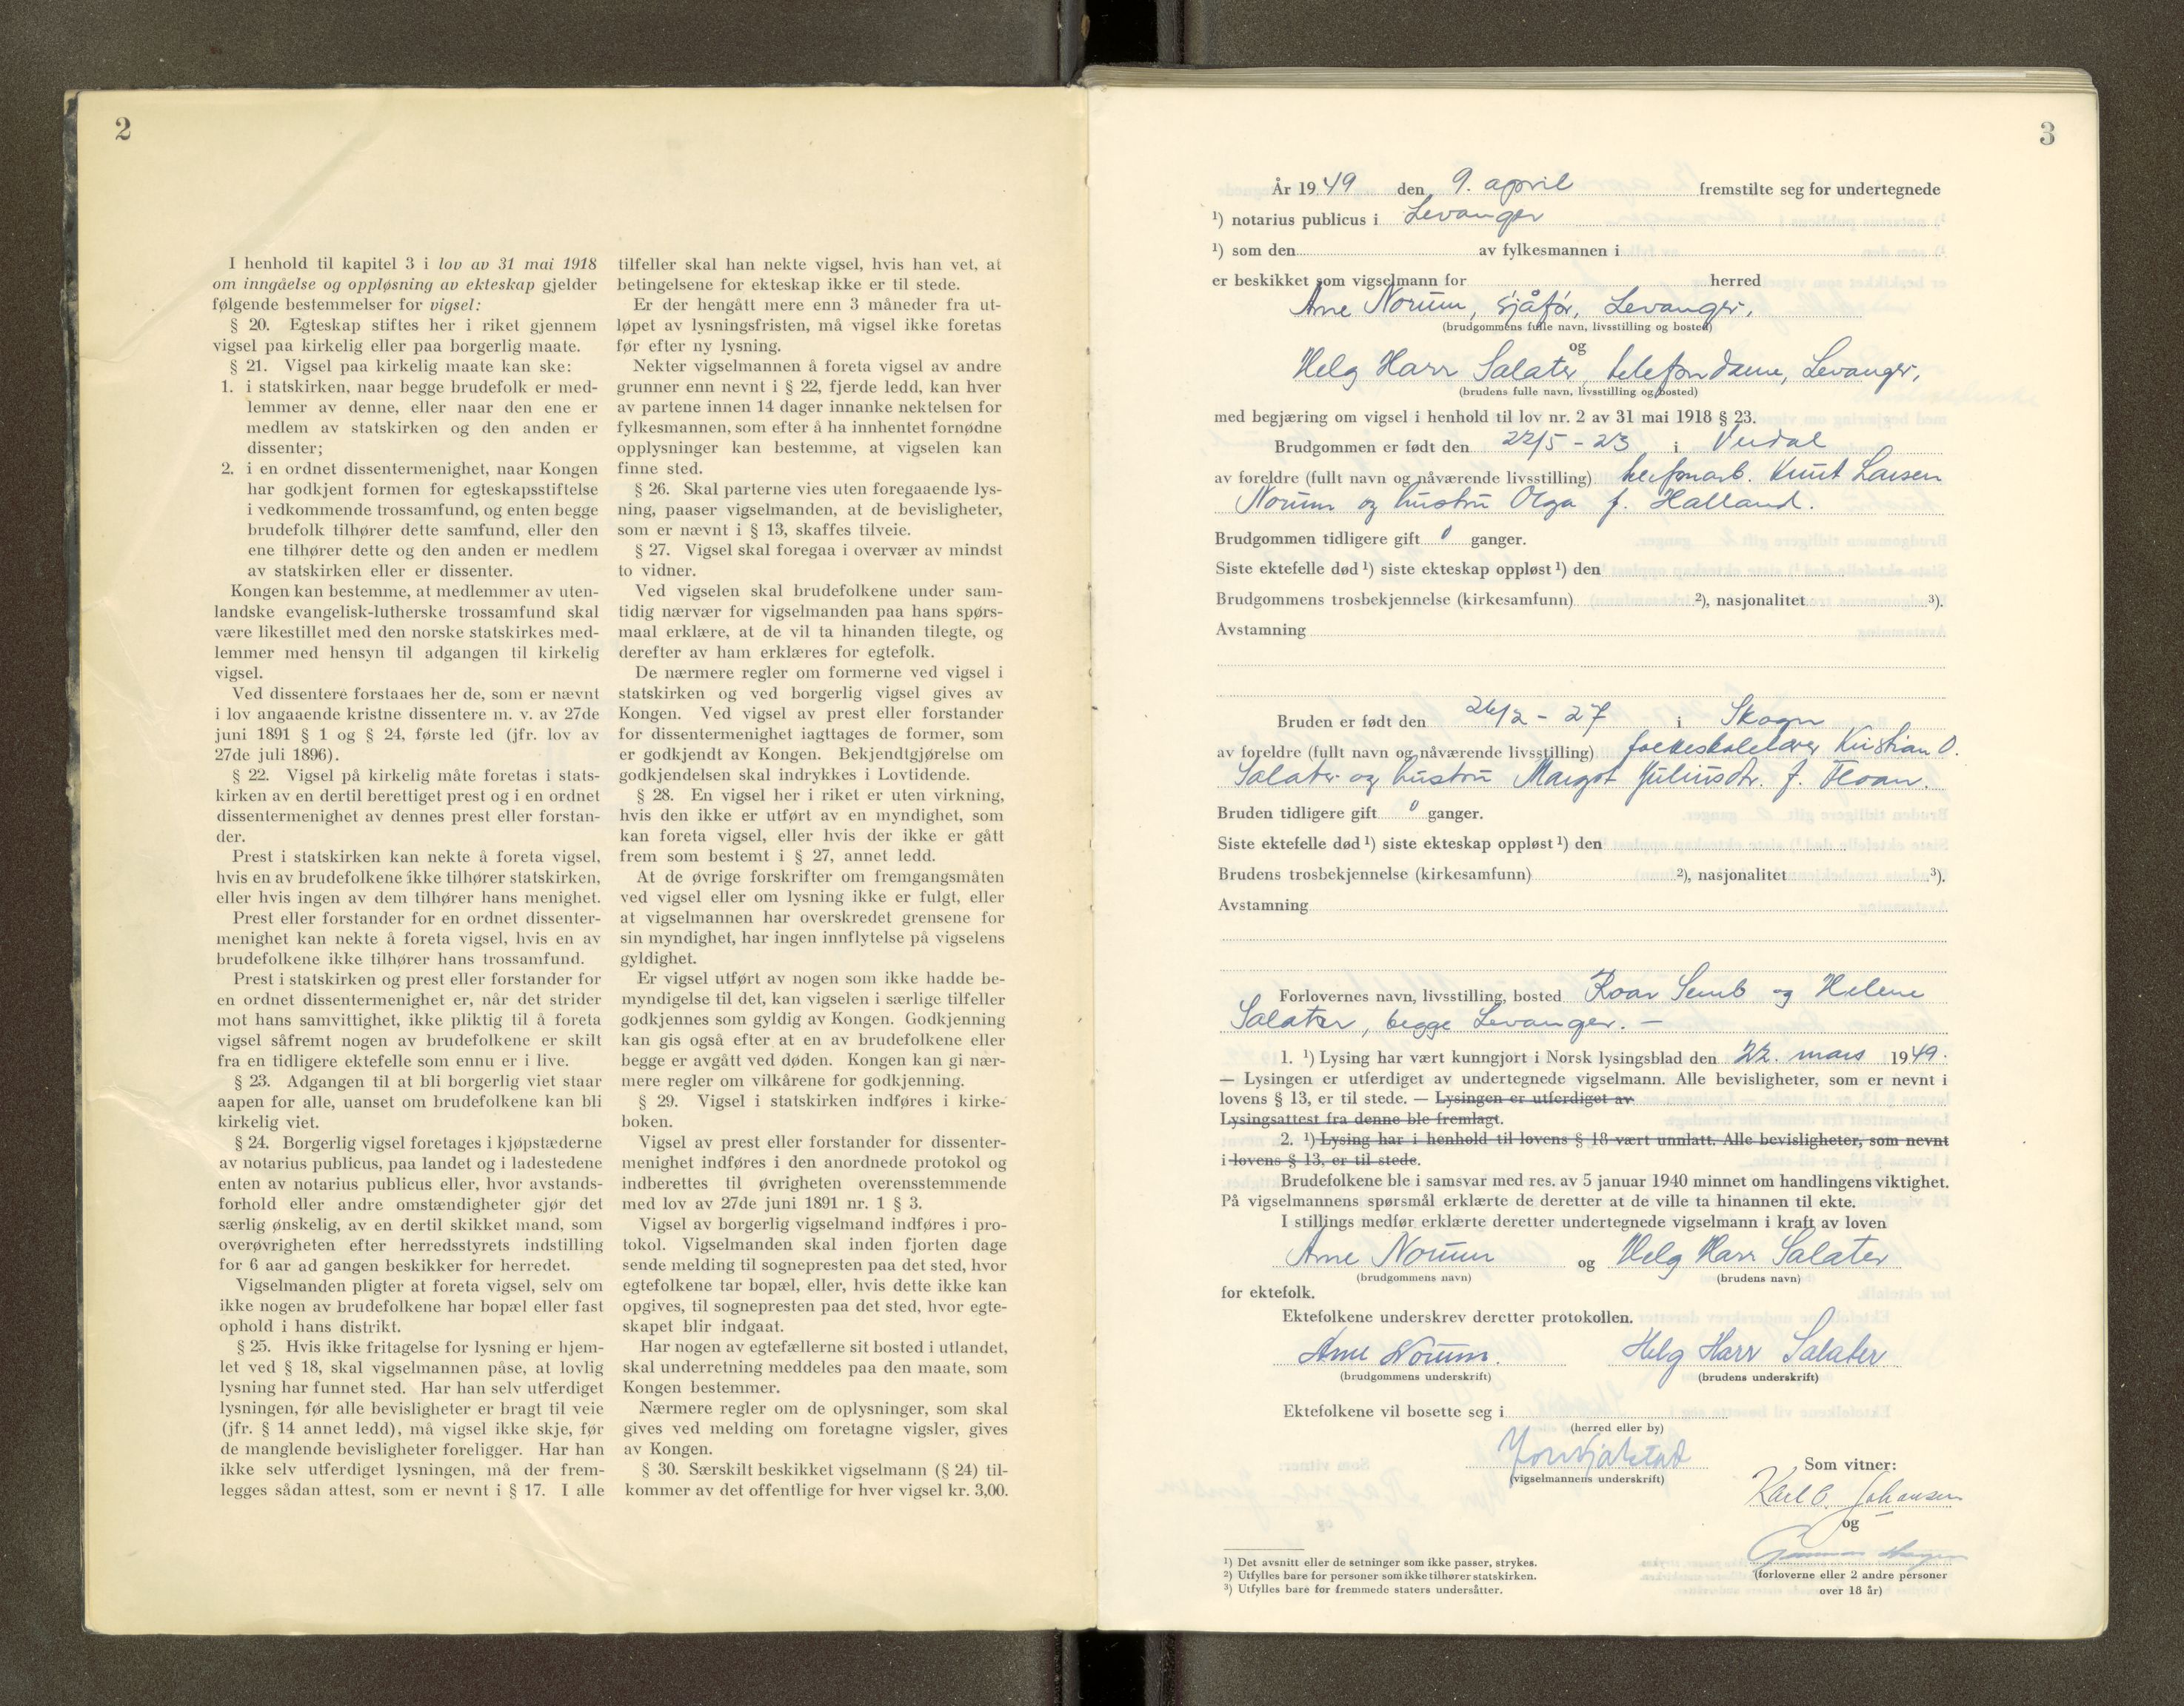 2
I henhold til kapitel 3 i lov av 31 mai 1918
om inngåelse og oppløsning av ekteskap gjelder
følgende bestemmelser for vigsel:
§ 20. Egteskap stiftes her i riket gjennem
vigsel paa kirkelig eller paa borgerlig maate.
§ 21. Vigsel paa kirkelig maate kan ske:
1. i statskirken, naar begge brudefolk er med-
lemmer av denne, eller naar den ene er
medlem av statskirken og den anden er
dissenter;
2. i en ordnet dissentermenighet, naar Kongen
har godkjent formen for egteskapsstiftelse
i vedkommende trossamfund, og enten begge
brudefolk tilhører dette samfund, eller den
ene tilhører dette og den anden er medlem
av statskirken eller er dissenter.
Kongen kan bestemme, at medlemmer av uten-
landske evangelisk-lutherske trossamfund skal
være likestillet med den norske statskirkes med-
lemmer med hensyn til adgangen til kirkelig
vigsel.
Ved dissentere forstaaes her de, som er nævnt
i lov angaaende kristne dissentere m. v. av 27de
juni 1891 § 1 og § 24, første led (jfr. lov av
27de juli 1896).
§ 22. Vigsel på kirkelig måte foretas i stats-
kirken av en dertil berettiget prest og i en ordnet
dissentermenighet av dennes prest eller forstan-
der.
Prest i statskirken kan nekte å foreta vigsel,
hvis en av brudefolkene ikke tilhører statskirken,
eller hvis ingen av dem tilhører hans menighet.
Prest eller forstander for en ordnet dissenter-
menighet kan nekte å foreta vigsel, hvis en av
brudefolkene ikke tilhører hans trossamfund.
Prest i statskirken og prest eller forstander for
en ordnet dissentermenighet er, når det strider
mot hans samvittighet, ikke pliktig til å foreta
vigsel såfremt nogen av brudefolkene er skilt
fra en tidligere ektefelle som ennu er i live.
§ 23. Adgangen til at bli borgerlig viet staar
aapen for alle, uanset om brudefolkene kan bli
kirkelig viet.
§ 24. Borgerlig vigsel foretages i kjøpstæderne
av notarius publicus, paa landet og i ladestedene
enten av notarius publicus eller, hvor avstands-
forhold eller andre omstændigheter gjør det
særlig ønskelig, av en dertil skikket mand, som
overøvrigheten efter herredsstyrets indstilling
for 6 aar ad gangen beskikker for herredet.
Vigselmanden pligter at foreta vigsel, selv om
ikke nogen av brudefolkene har bopæl eller fast
ophold i hans distrikt.
§ 25. Hvis ikke fritagelse for lysning er hjem-
let ved § 18, skal vigselmannen påse, at lovlig
lysning har funnet sted. Har han selv utferdiget
lysningen, før alle bevisligheter er bragt til veie
(jfr. § 14 annet ledd), må vigsel ikke skje, før
de manglende bevisligheter foreligger. Har han
ikke selv utferdiget lysningen, må der frem-
legges sådan attest, som er nevnt i § 17. I alle
tilfeller skal han nekte vigsel, hvis han vet, at
betingelsene for ekteskap ikke er til stede.
Er der hengått mere enn 3 måneder fra ut-
løpet av lysningsfristen, må vigsel ikke foretas
før efter ny lysning.
Nekter vigselmannen å foreta vigsel av andre
grunner enn nevnt i § 22, fjerde ledd, kan hver
av partene innen 14 dager innanke nektelsen for
fylkesmannen, som efter å ha innhentet fornødne
opplysninger kan bestemme, at vigselen kan
finne sted.
§ 26. Skal parterne vies uten foregaaende lys-
ning, paaser vigselmanden, at de bevisligheter,
som er nævnt i § 13, skaffes tilveie.
§ 27. Vigsel skal foregaa i overvær av mindst
to vidner.
Ved vigselen skal brudefolkene under sam-
tidig nærvær for vigselmanden paa hans spørs-
maal erklære, at de vil ta hinanden tilegte, og
derefter av ham erklæres for egtefolk.
De nærmere regler om formerne ved vigsel i
statskirken og ved borgerlig vigsel gives av
Kongen. Ved vigsel av prest eller forstander
for dissentermenighet iagttages de former, som
er godkjendt av Kongen. Bekjendtgjørelse om
godkjendelsen skal indrykkes i Lovtidende.
§ 28. En vigsel her i riket er uten virkning,
hvis den ikke er utført av en myndighet, som
kan foreta vigsel, eller hvis der ikke er gått
frem som bestemt i § 27, annet ledd.
At de øvrige forskrifter om fremgangsmåten
ved vigsel eller om lysning ikke er fulgt, eller
at vigselmannen har overskredet grensene for
sin myndighet, har ingen innflytelse på vigselens
gyldighet.
Er vigsel utført av nogen som ikke hadde be-
myndigelse til det, kan vigselen i særlige tilfeller
godkjennes som gyldig av Kongen. Godkjenning
kan gis også efter at en av brudefolkene eller
begge er avgått ved døden. Kongen kan gi nær-
mere regler om vilkårene for godkjenning.
§ 29. Vigsel i statskirken indføres i kirke-
boken.
Vigsel av prest eller forstander for dissenter-
menighet indføres i den anordnede protokol og
indberettes til øvrigheten overensstemmende
med lov av 27de juni 1891 nr. 1 § 3.
Vigsel av borgerlig vigselmand indføres i pro-
tokol. Vigselmanden skal inden fjorten dage
sende melding til sognepresten paa det sted, hvor
egtefolkene tar bopæl, eller, hvis dette ikke kan
opgives, til sognepresten paa det sted, hvor egte-
skapet blir indgaat.
Har nogen av egtefællerne sit bosted i utlandet,
skal underretning meddeles paa den maate, som
Kongen bestemmer.
Nærmere regler om de oplysninger, som skal
gives ved melding om foretagne vigsler, gives
av Kongen.
§ 30. Særskilt beskikket vigselmann (§ 24) til-
kommer av det offentlige for hver vigsel kr. 3,00.
3
År 1949 den 9. april fremstilte seg for undertegnede
¹) notarius publicus i Levanger
¹) som den av fylkesmannen i
er beskikket som vigselmann for herred
Arne Norum, sjåfør, Levanger,
(brudgommens fulle navn, livsstilling og bosted)
og
Helg Harr Salater, telefondame, Levanger,
(brudens fulle navn, livsstilling og bosted)
med begjæring om vigsel i henhold til lov nr. 2 av 31 mai 1918 § 23.
Brudgommen er født den 22/5 - 23 i Verdal
av foreldre (fullt navn og nåværende livsstilling) telefonarb. Knut Larsen
Norum og hustru Olga f. Halland.
Brudgommen tidligere gift 0 ganger.
Siste ektefelle død ¹) siste ekteskap oppløst ¹) den
Brudgommens trosbekjennelse (kirkesamfunn) ²), nasjonalitet ³).
Avstamning
Bruden er født den 26/2 - 27 i Skogn
av foreldre (fullt navn og nåværende livsstilling) folkeskolelærer Kristian O.
Salater og hustru Margot Juliusdtr. f. Floan.
Bruden tidligere gift 0 ganger.
Siste ektefelle død ¹) siste ekteskap oppløst ¹) den
Brudens trosbekjennelse (kirkesamfunn) ²), nasjonalitet ³).
Avstamning
Forlovernes navn, livsstilling, bosted Roar Semb og Helene
Salater, begge Levanger. —
1. ¹) Lysing har vært kunngjort i Norsk lysingsblad den 22. mars 1949.
— Lysingen er utferdiget av undertegnede vigselmann. Alle bevisligheter, som er nevnt i
lovens § 13, er til stede. — Lysingen er utferdiget av
Lysingsattest fra denne ble fremlagt.
2. ¹) Lysing har i henhold til lovens § 18 vært unnlatt. Alle bevisligheter, som nevnt
i lovens § 13, er til stede.
Brudefolkene ble i samsvar med res. av 5 januar 1940 minnet om handlingens viktighet.
På vigselmannens spørsmål erklærte de deretter at de ville ta hinannen til ekte.
I stillings medfør erklærte deretter undertegnede vigselmann i kraft av loven
Arne Norum og Helg Harr Salater
(brudgommens navn) (brudens navn)
for ektefolk.
Ektefolkene underskrev deretter protokollen.
Arne Norum. Helg Harr Salater
(brudgommens underskrift) (brudens underskrift)
Ektefolkene vil bosette seg i
(herred eller by)
(vigselmannens underskrift)
Som vitner:
Karl O. Johansen
og
(forloverne eller 2 andre personer
over 18 år)
¹) Det avsnitt eller de setninger som ikke passer, strykes.
²) Utfylles bare for personer som ikke tilhører statskirken.
³) Utfylles bare for fremmede staters undersåtter.